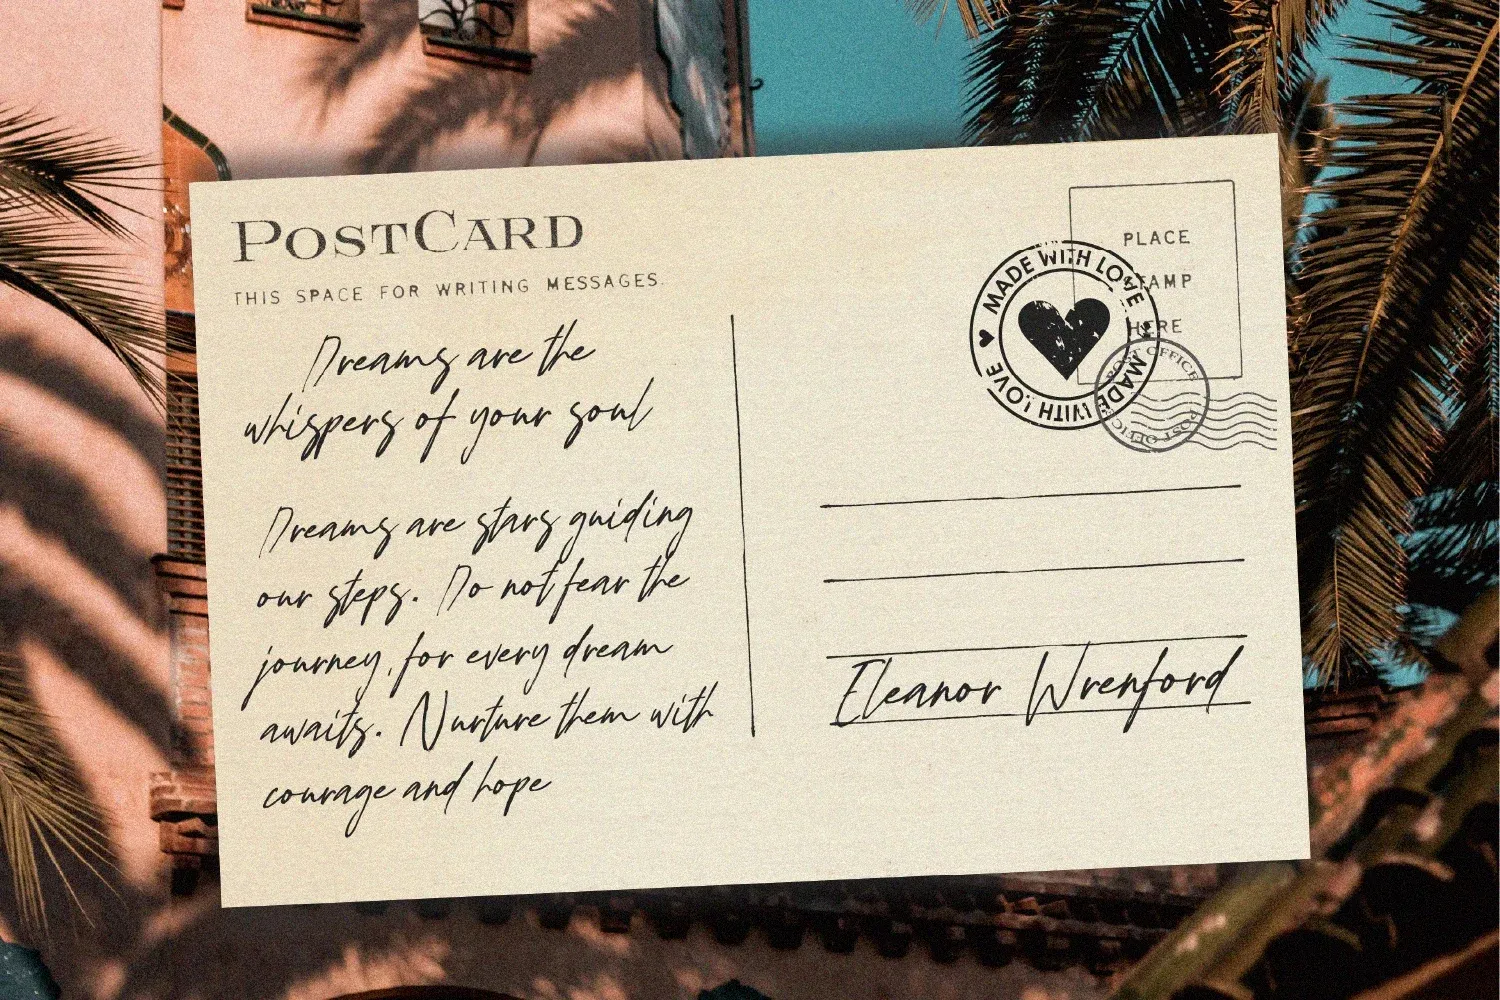 PostCard
THIS SPACE FOR WRITING MESSAGES.
Dreams are the
whispers of your soul
Dreams are stars guiding
our steps. Do not fear the
journey, for every dream
awaits. Nurture them with
courage and hope
PLACE
STAMP
HERE
MADE WITH LOVE
MADE WITH LOVE
POST OFFICE
POST OFFICE
Eleanor Wrenford